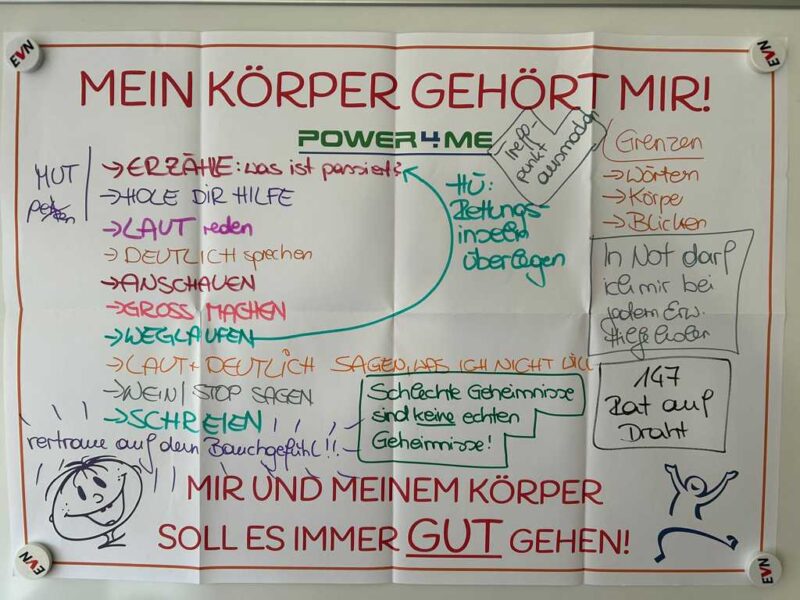 EVN
EVN
MEIN KÖRPER GEHÖRT MIR!
POWER4ME
Treff-
punkt
ausmachen
MUT
→ ERZÄHLE: was ist passiert?
→ HOLE DIR HILFE
→ LAUT reden
→ DEUTLICH sprechen
→ ANSCHAUEN
→ GROSS MACHEN
→ WEGLAUFEN
→ LAUT + DEUTLICH SAGEN, WAS ICH NICHT WILL
→ NEIN / STOP SAGEN
→ SCHREIEN
vertraue auf dein Bauchgefühl!!
HÜ:
Rettungs-
inseln
überlegen
Grenzen
→ Wörtern
→ Körper
→ Blicken
In Not darf
ich mir bei
jedem Erw.
Hilfe holen
147
Rat auf
Draht
Schlechte Geheimnisse
sind keine echten
Geheimnisse!
MIR UND MEINEM KÖRPER
SOLL ES IMMER GUT GEHEN!
EVN
EVN